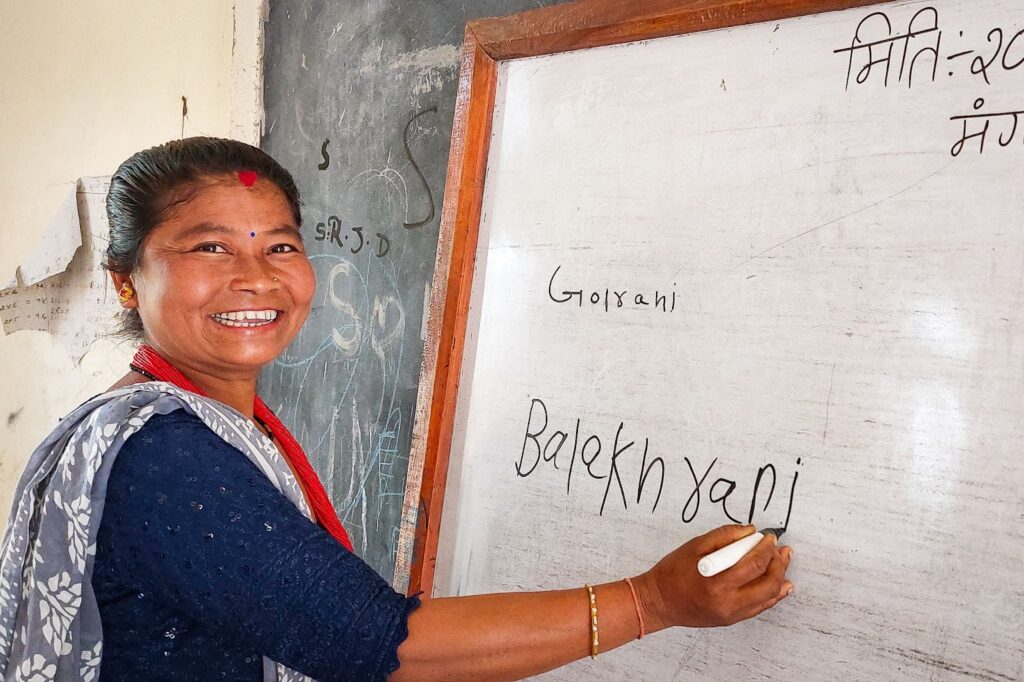 मिति:-२०
मंग
S
S
S.R.J.D
Golrani
Balakhrani